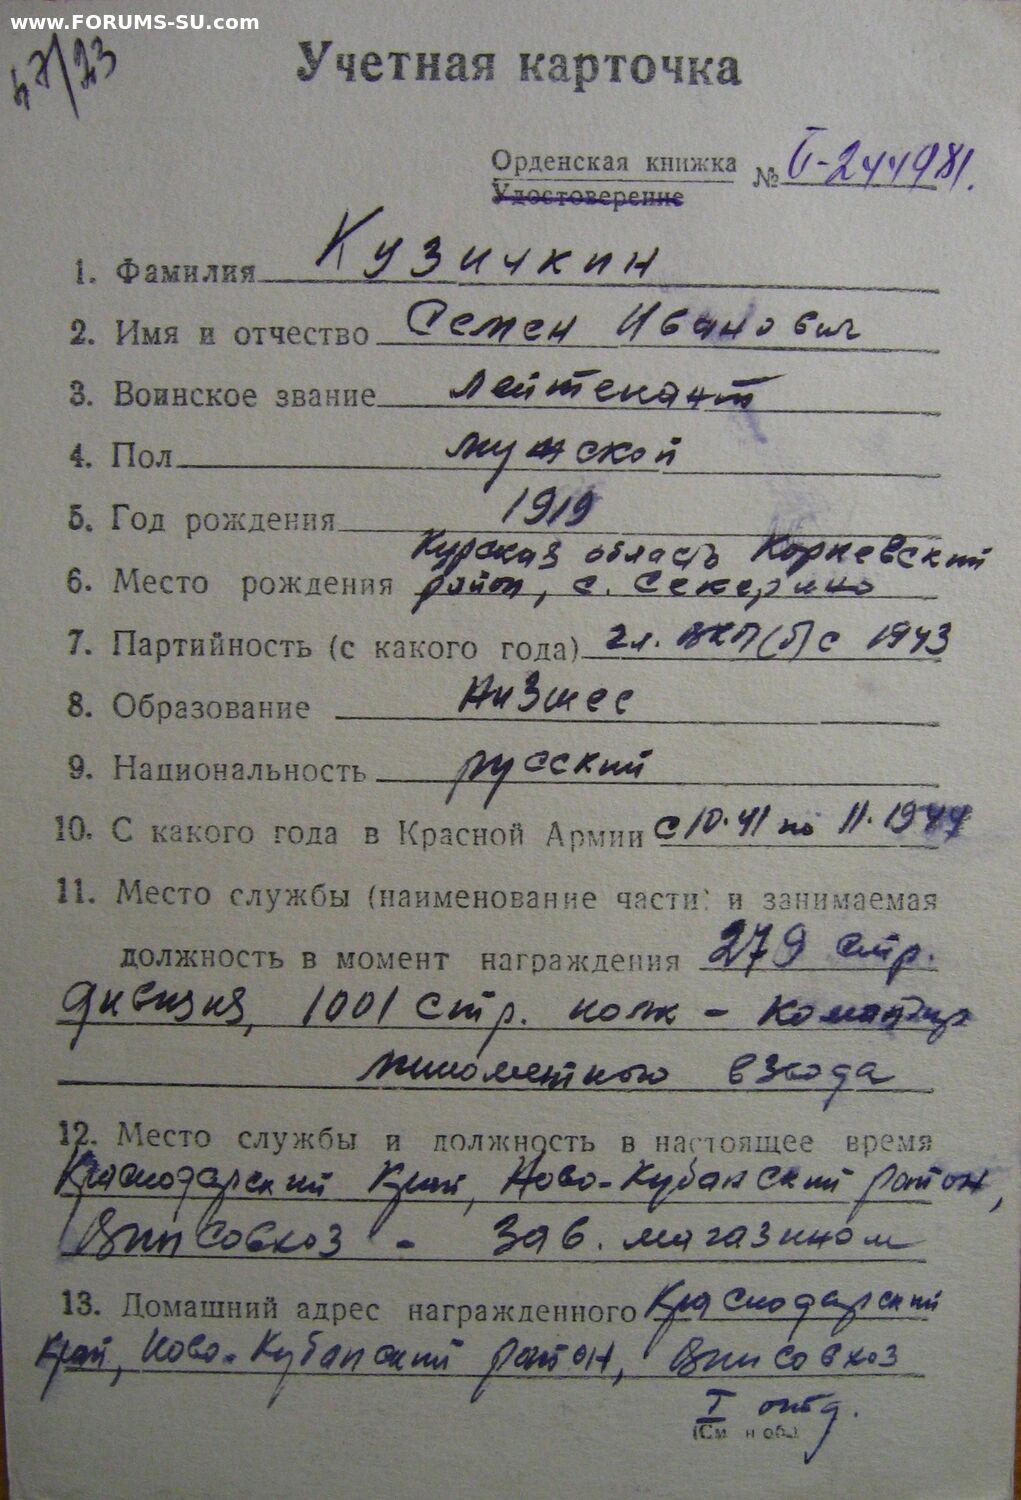 www.FORUMS-SU.com
47/23
Учетная карточка
Орденская книжка № Б-244981.
Удостоверение
1. Фамилия Кузичкин
2. Имя и отчество Семен Иванович
3. Воинское звание лейтенант
4. Пол мужской
5. Год рождения 1919
Курская область Кореневский
6. Место рождения район, с. Секерино
7. Партийность (с какого года) чл. ВКП(б) с 1943
8. Образование Низшее
9. Национальность русский
10. С какого года в Красной Армии с 10.41 по 11.1944
11. Место службы (наименование части) и занимаемая
должность в момент награждения 279 стр.
дивизия, 1001 стр. полк - командир
минометного взвода
12. Место службы и должность в настоящее время
Краснодарский край, Ново-Кубанский район,
совхоз - Зав. магазином
13. Домашний адрес награжденного Краснодарский
край, Ново-Кубанский район, совхоз
I отд.
(См. на об.)